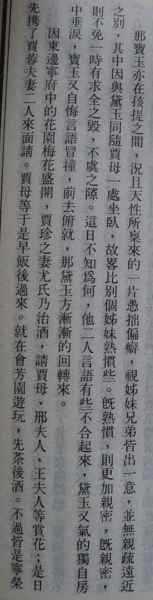 那寶玉亦在孩提之間，況且天性所稟來的一片愚拙偏癖，視姊妹兄弟皆出一意，並無親疏遠近
之別，其中因與黛玉同隨賈母一處坐臥，故畧比別個姊妹熟慣些。既熟慣，則更加親密，旣親密，
則不免一時有求全之毀，不虞之隙。這日不知為何，他二人言語有些不合起來，黛玉又氣的獨自房
中垂淚，寶玉又自悔言語冒撞，前去俯就，那黛玉方漸漸的回轉來。
因東邊寧府中的花園梅花盛開，賈珍之妻尤氏乃治酒，請賈母、邢夫人、王夫人等賞花；是日
先携了賈蓉夫妻二人來面請。賈母等于是早飯後過來。就在會芳園遊玩，先茶後酒。不過皆是寧榮